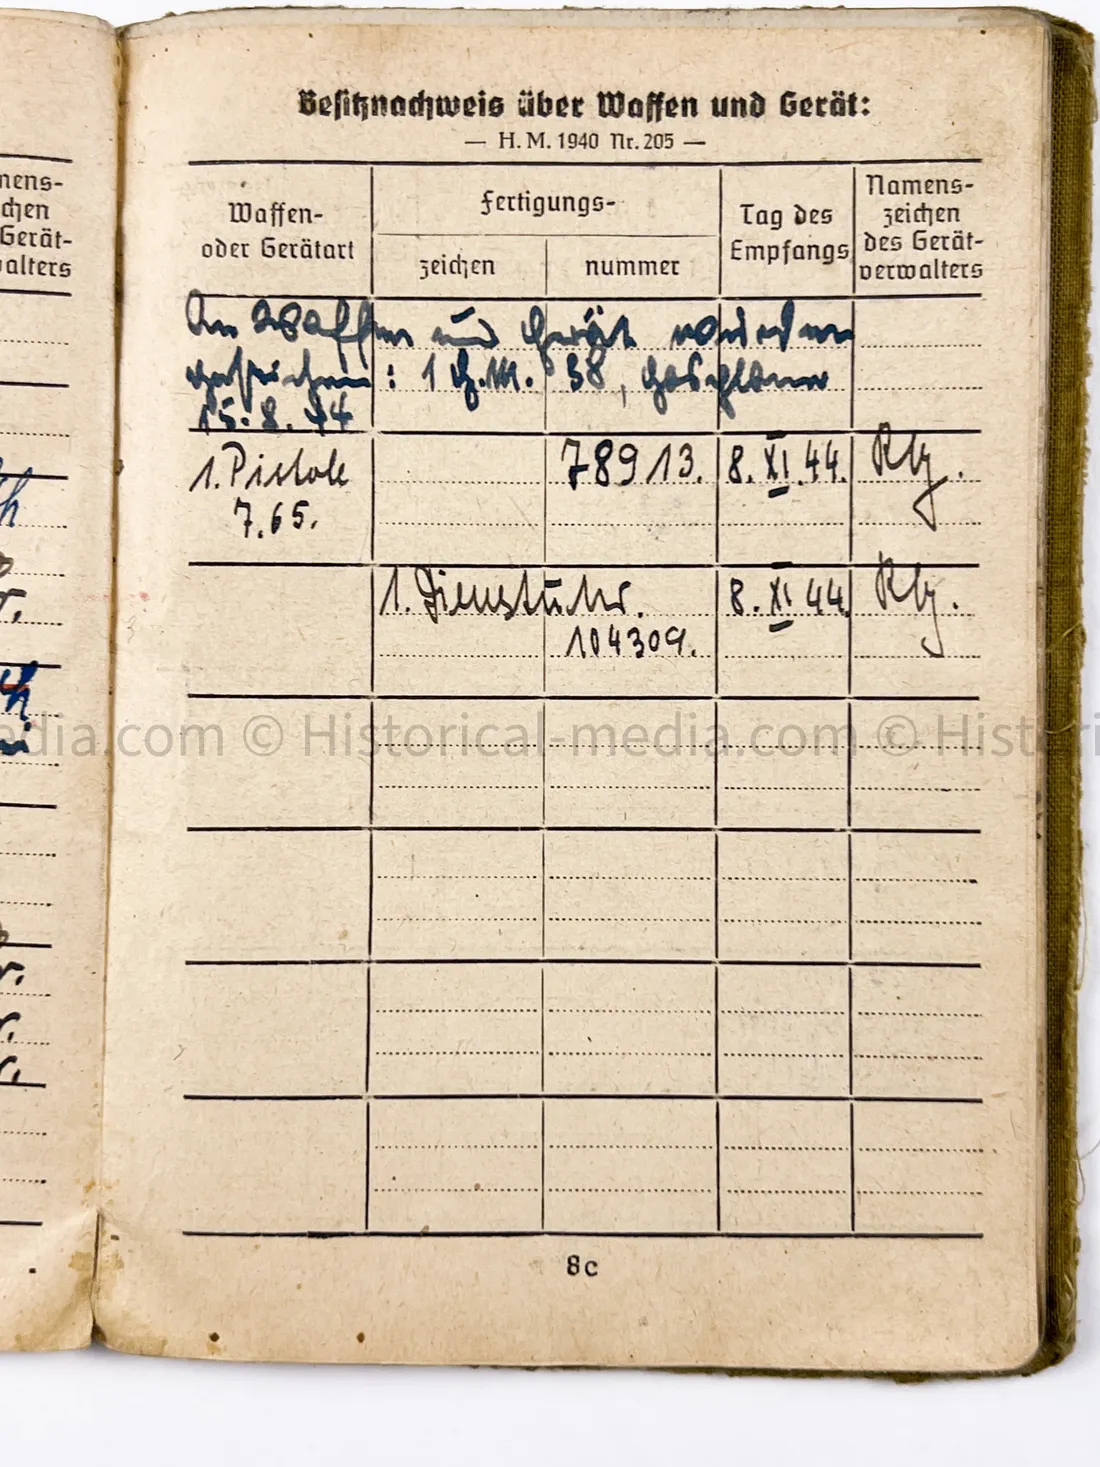 Besitznachweis über Waffen und Gerät:
— H. M. 1940 Nr. 205 —
Waffen-
oder Gerätart
Fertigungs-
zeichen
nummer
Tag des
Empfangs
Namens-
zeichen
des Gerät-
verwalters
An Waffen und Gerät wurden
: 1 G.M. 38, Gasplane
15.8.44
1. Pistole
7.65.
78913.
8. XI. 44.
1. Dienstuhr.
104309.
8. XI 44.
8c
mens-
chen
Gerät-
valters
edia.com © Historical-media.com © Histori